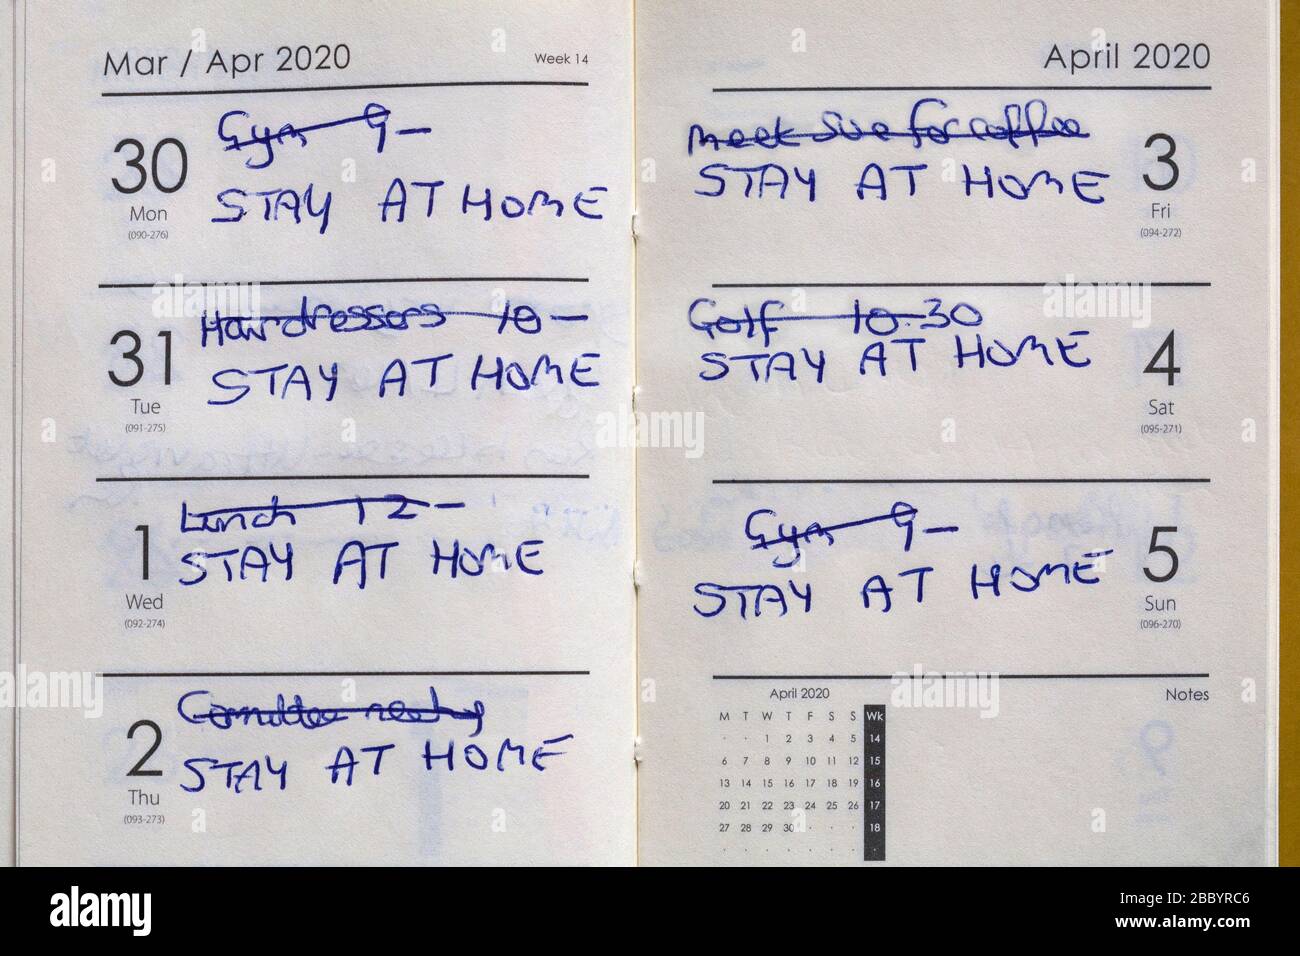 Mar / Apr 2020
Week 14
Gym 9-
30
STAY AT HOME
Mon
(090-276)
Hairdressers 10-
31
STAY AT HOME
Tue
(091-275)
Lunch 12-
1
STAY AT HOME
Wed
(092-274)
Committee meeting
2
STAY AT HOME
Thu
(093-273)
April 2020
meet Sue for coffee
3
STAY AT HOME
Fri
(094-272)
Golf 10.30
4
STAY AT HOME
Sat
(095-271)
Gym 9-
5
STAY AT HOME
Sun
(096-270)
April 2020
M T W T F S S Wk
· · 1 2 3 4 5 14
6 7 8 9 10 11 12 15
13 14 15 16 17 18 19 16
20 21 22 23 24 25 26 17
27 28 29 30 · · · 18
· · · · · · · ·
Notes
alamy
alamy
Image ID: 2BBYRC6
www.alamy.com